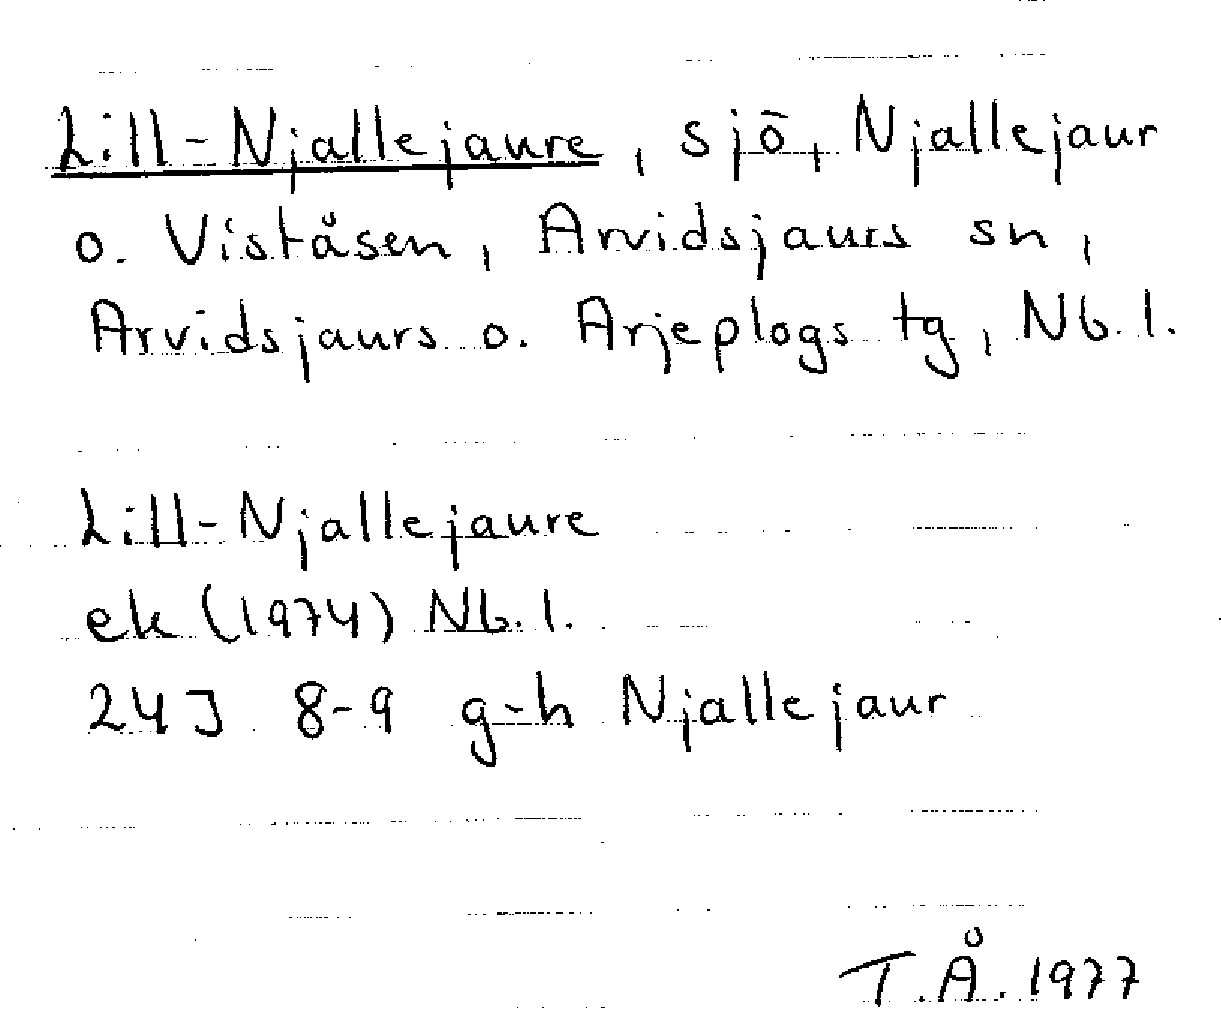 Lill-Njallejaure, sjö, Njallejaur
o. Viståsen, Arvidsjaurs sn,
Arvidsjaurs o. Arjeplogs tg, Nb. l.
Lill-Njallejaure
ek (1974) Nb. l.
24J 8-9 g-h Njallejaur
T.Å. 1977